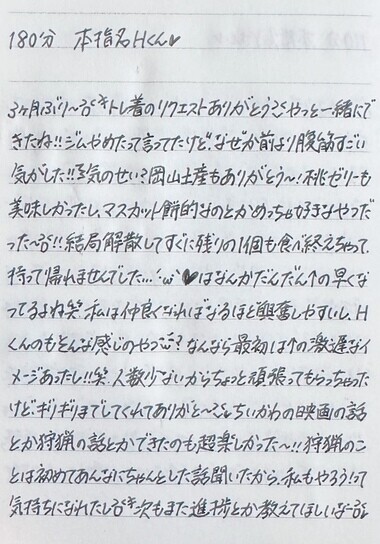 180分 本指名Hくん♥
3ヶ月ぶり〜 トレ着のリクエストありがとう やっと一緒にで
きたね!!ジムやめたって言ってたけど、なぜか前より腹筋すごい
気がした!! 気のせい?岡山土産もありがとう〜!桃ゼリーも
美味しかったし、マスカット餅的なのとかめっちゃ好きなやつだ
った〜 !!結局解散してすぐに残りの1個も食べ終えちゃって、
持って帰れませんでした...´ω` ♥はなんかだんだん↑の早くな
ってるよね笑 私は仲良くなればなるほど興奮しやすいし、H
くんのもそんな感じのやつ ?なんなら最初は↑の激遅なイ
メージあったし!!笑 人数少ないからちょっと頑張ってもらっちゃった
けどギリギリまでしてくれてありがと〜 ちいかわの映画の話
とか狩猟の話とかできたのも超楽しかった〜!!狩猟のこ
とは初めてあんなにちゃんとした話聞いたから、私もやろう!って
気持ちになれたし 次もまた進捗とか教えてほしいな〜